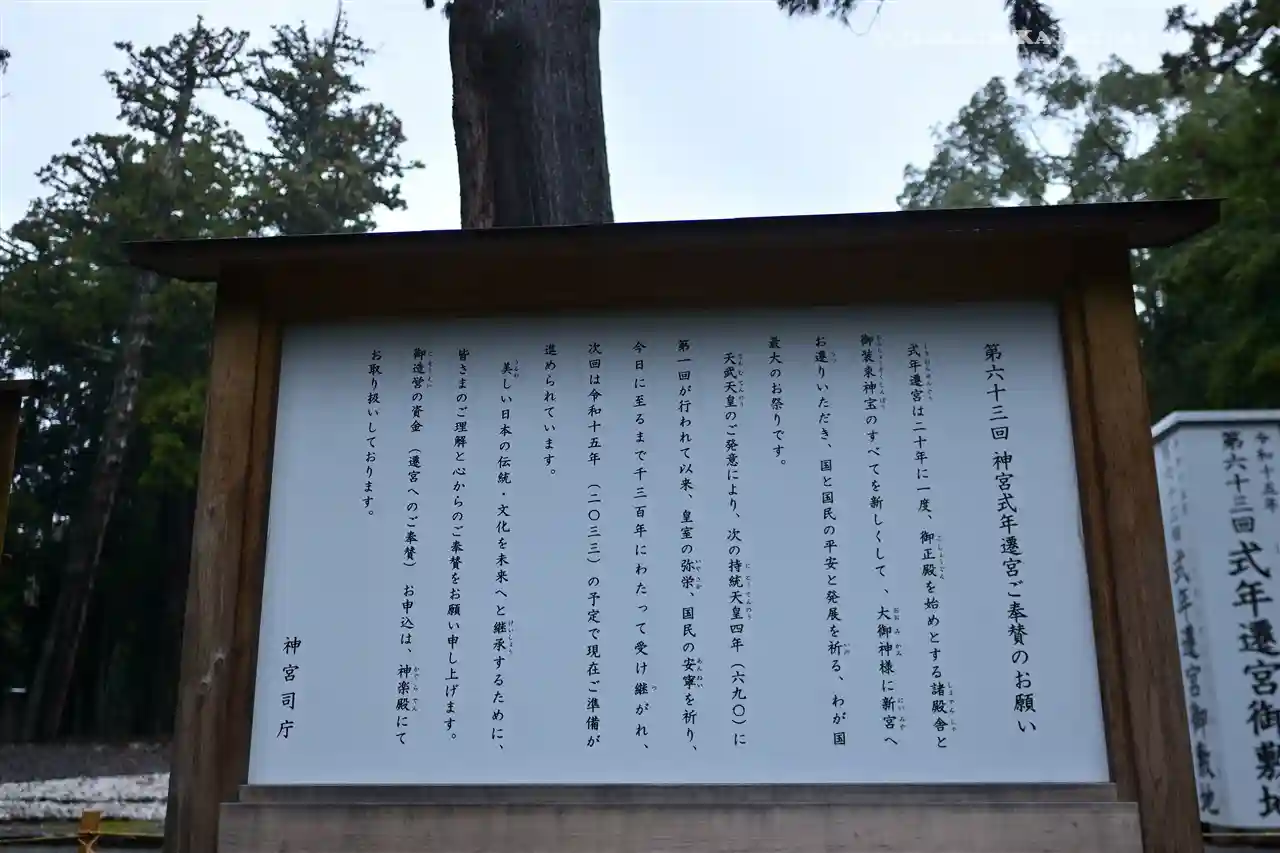 第六十三回 神宮式年遷宮ご奉賛のお願い
式年遷宮は二十年に一度、御正殿を始めとする諸殿舎と
御装束神宝のすべてを新しくして、大御神様に新宮へ
お遷りいただき、国と国民の平安と発展を祈る、わが国
最大のお祭りです。
天武天皇のご発意により、次の持統天皇四年（六九〇）に
第一回が行われて以来、皇室の弥栄、国民の安寧を祈り、
今日に至るまで千三百年にわたって受け継がれ、
次回は令和十五年（二〇三三）の予定で現在ご準備が
進められています。
美しい日本の伝統・文化を未来へと継承するために、
皆さまのご理解と心からのご奉賛をお願い申し上げます。
御造営の資金（遷宮へのご奉賛）お申込は、神楽殿にて
お取り扱いしております。
神宮司庁
令和十五年
第六十三回 式年遷宮御敷地
式年遷宮御敷地